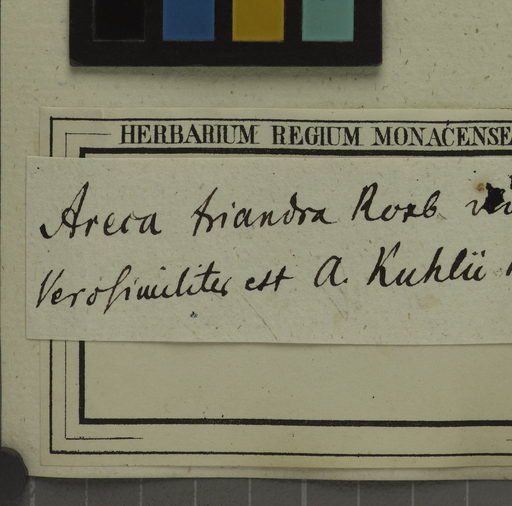 HERBARIUM REGIUM MONACENSE
Areca triandra Roxb
Verosimiliter est A. Kuhlii